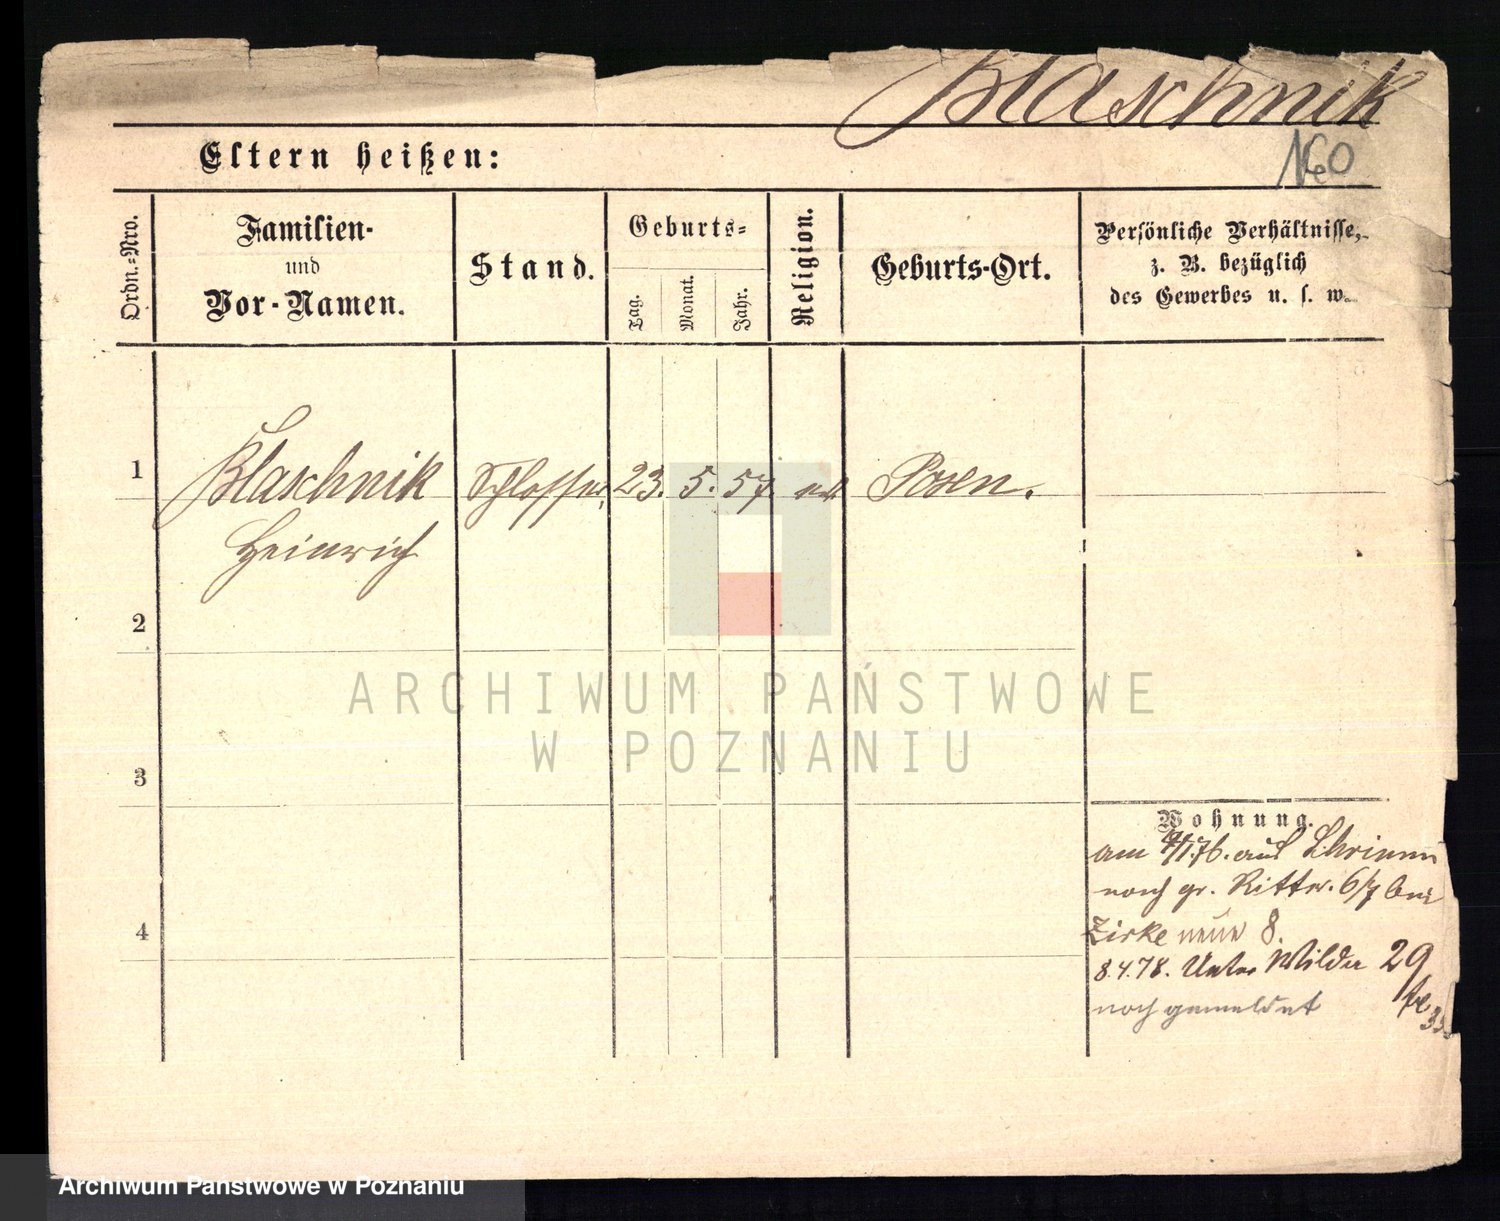 Blaschnik
Eltern heißen:
Ordn.-Nro.
Familien-
und
Vor-Namen.
Stand.
Geburts-
Tag.
Monat.
Jahr.
Religion.
Geburts-Ort.
Persönliche Verhältnisse,
z. B. bezüglich
des Gewerbes u. s. w.
1 Blaschnik Schlosser 23. 5. 57 Posen.
Heinrich
2
3
4
Wohnung.
am aus Schrimm
nach gr. Ritter. 6/7
Zirke neue 8.
8.4.78. Unter Wilda 29
noch gemeldet
ARCHIWUM PAŃSTWOWE
W POZNANIU
Archiwum Państwowe w Poznaniu